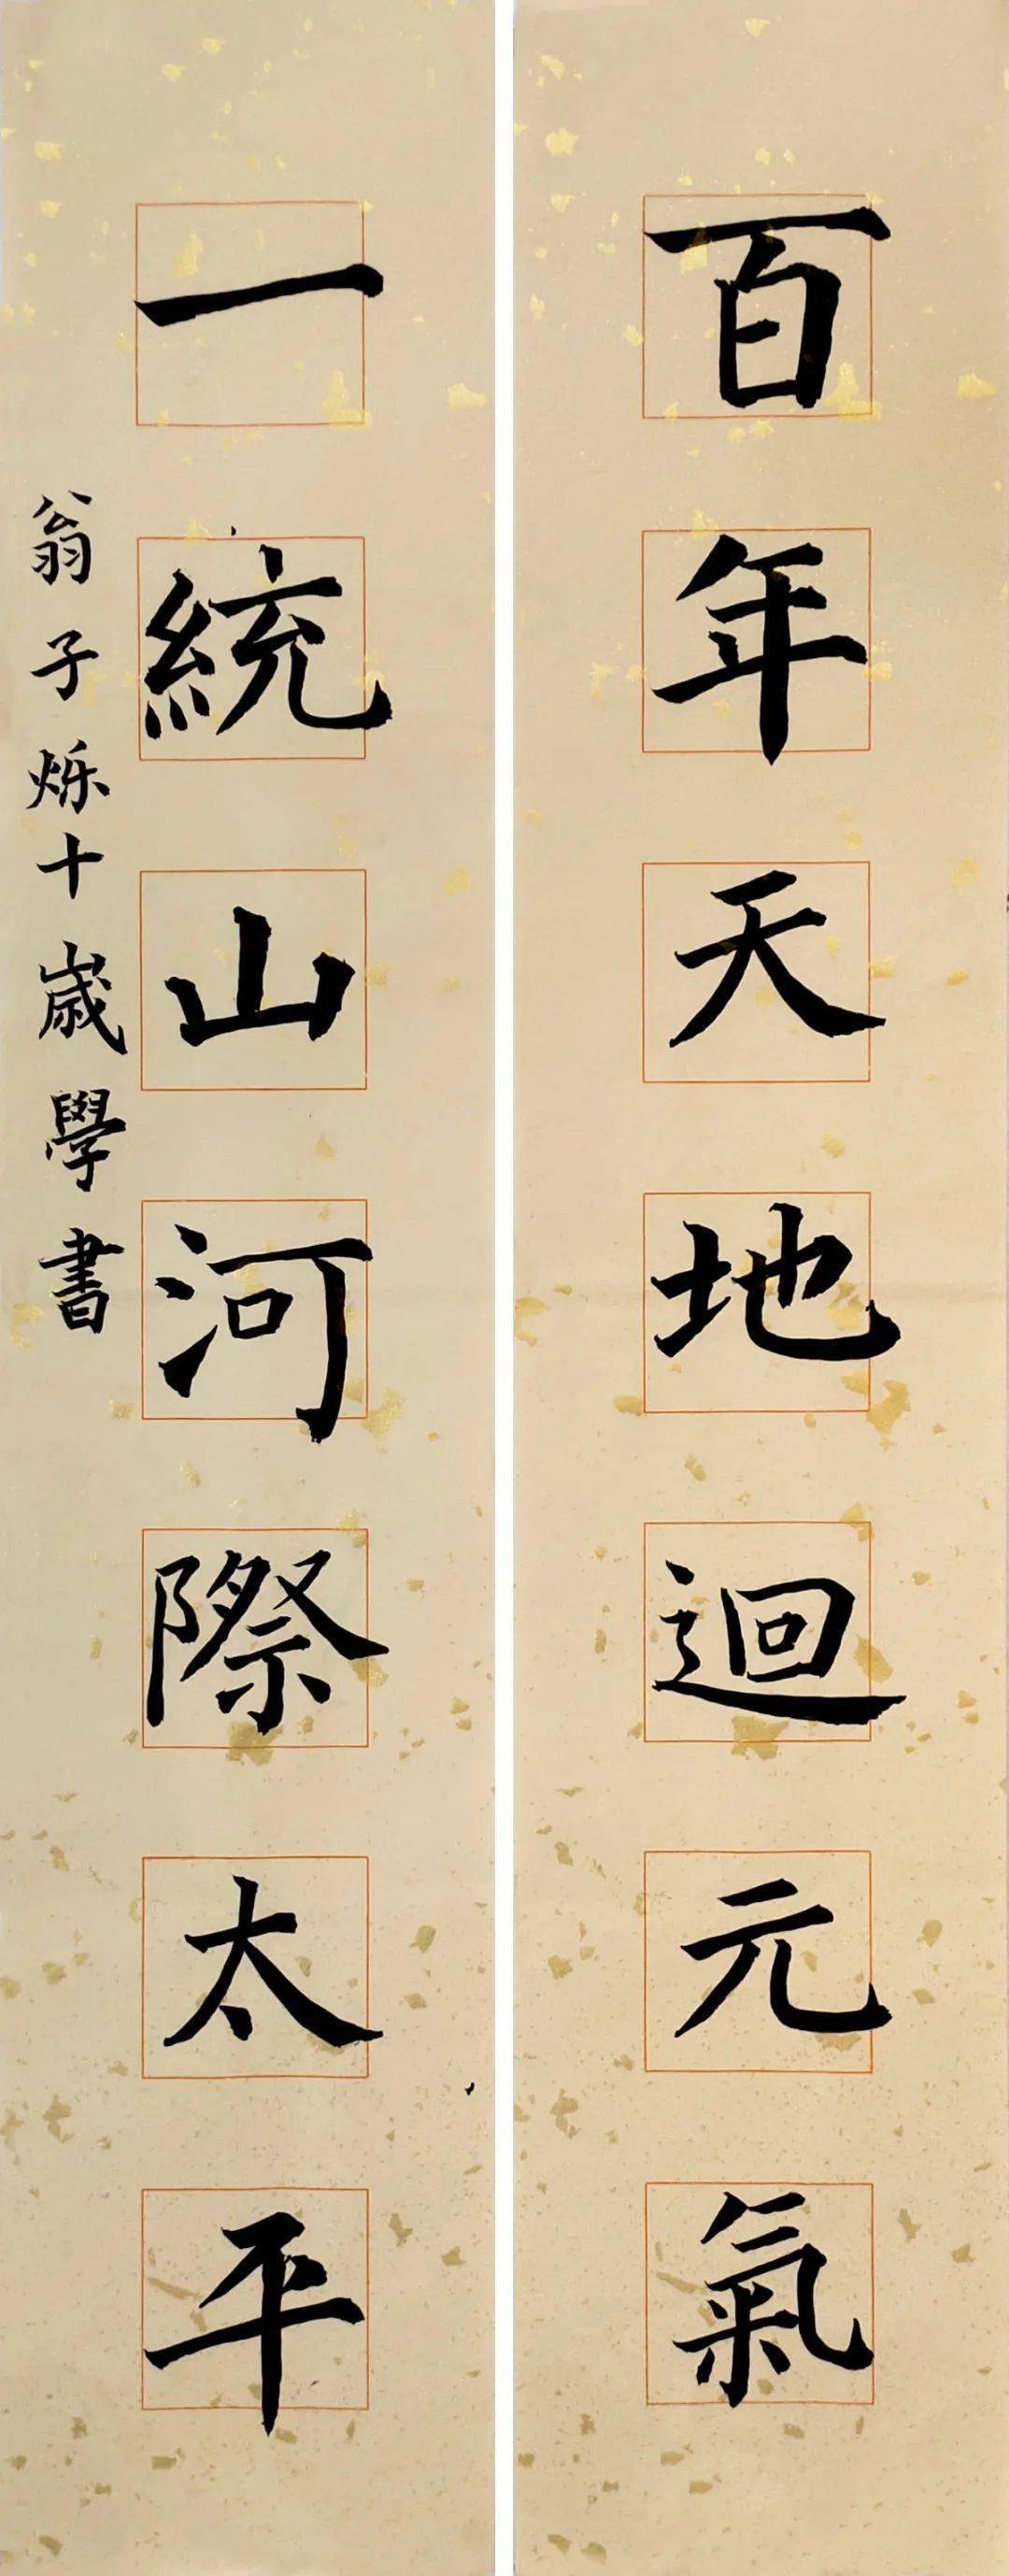 百年天地迴元氣
一統山河際太平
翁子烁十歲學書